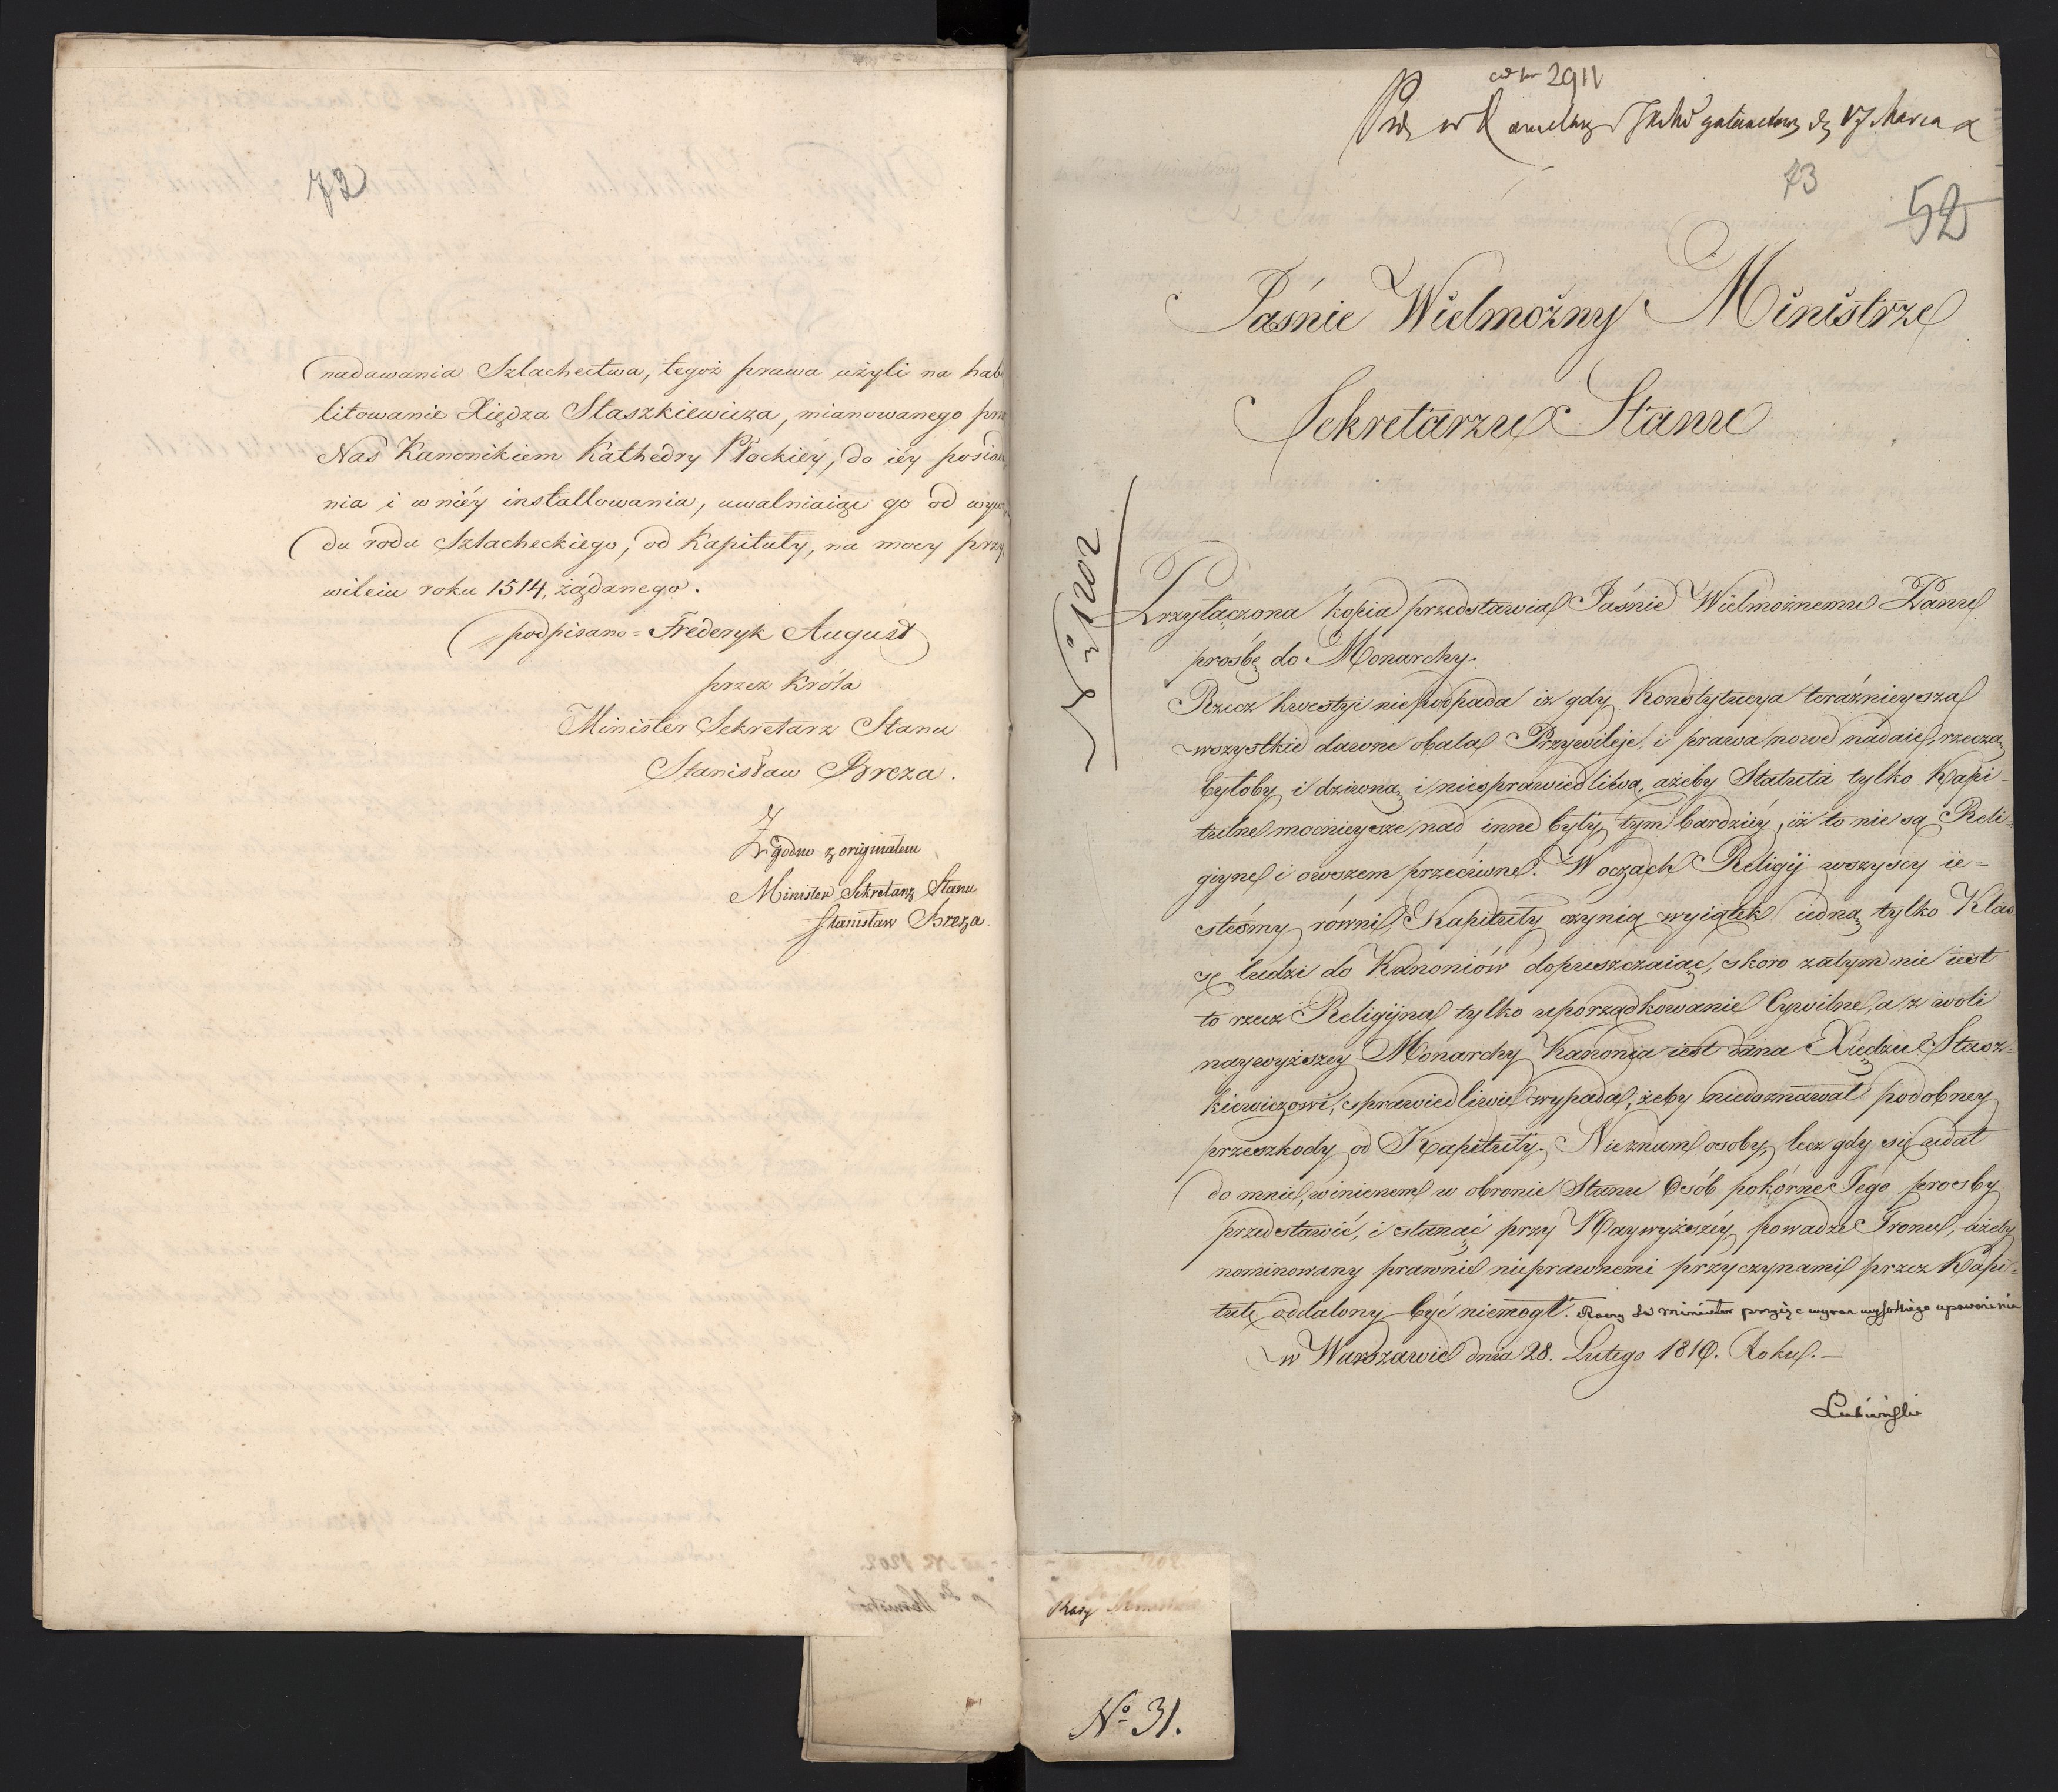 72
nadawania Szlachectwa, tegoż prawa użyli na hab
litowanie Xiędza Staszkiewicza, mianowanego prze
Nas Kanonikiem Kathedry Płockiéy, do iéy posiada
nia i w niéy installowania, uwalniaiąc go od wywo
du rodu Szlacheckiego, od Kapituły, na mocy przy
wileiu roku 1514, żądanego.
podpisano = Frederyk August
przez Króla
Minister Sekretarz Stanu
Stanisław Breza.
Zgodno z originałem
Minister Sekretarz Stanu
Stanisław Breza.
2911
17 Marca
73
52
Jaśnie Wielmożny Ministrze
Sekretarzu Stanu
N 1202
Przyłączona kopia przedstawia Jaśnie Wielmożnemu Panu
prośbę do Monarchy.
Rzecz kwestyi niepodpada iż gdy Konstytucya teraźnieysza
wszystkie dawne obala Przywileje, i prawa nowe nadaie, rzeczą
byłoby i dziwną i niesprawiedliwą, ażeby Statuta tylko Kapi-
tulne mocnieysze nad inne były, tym bardziéy, iż to nie są Reli-
giyne i owszem przeciwne. W oczach Religij wszyscy ie-
steśmy równi, Kapituły czynią wyiątek iedną tylko Klas
sę ludzi do Kanoniów dopuszczaiąc, skoro zatym nie iest
to rzecz Religijna tylko uporządkowanie Cywilne, a z woli
naywyższey Monarchy Kanonja iest dana Xiędzu Stasz-
kiewiczowi, sprawiedliwie wypada, żeby niedoznawał podobney
przeszkody od Kapituły. Nieznam osoby, lecz gdy się udał
do mnie, winienem w obronie Stanu Osób pokórne Jego prosby
przedstawić, i stanąć przy Naywyższéy powadze Tronu, ażeby
nominowany prawnie nieprawnemi przyczynami przez Kapi-
tułę oddalony być niemógł. Racz JW Minister przyiąć wyraz wysokiego upoważenia
w Warszawie dnia 28. Lutego 1810. Roku.-
Łubieński
No 31.